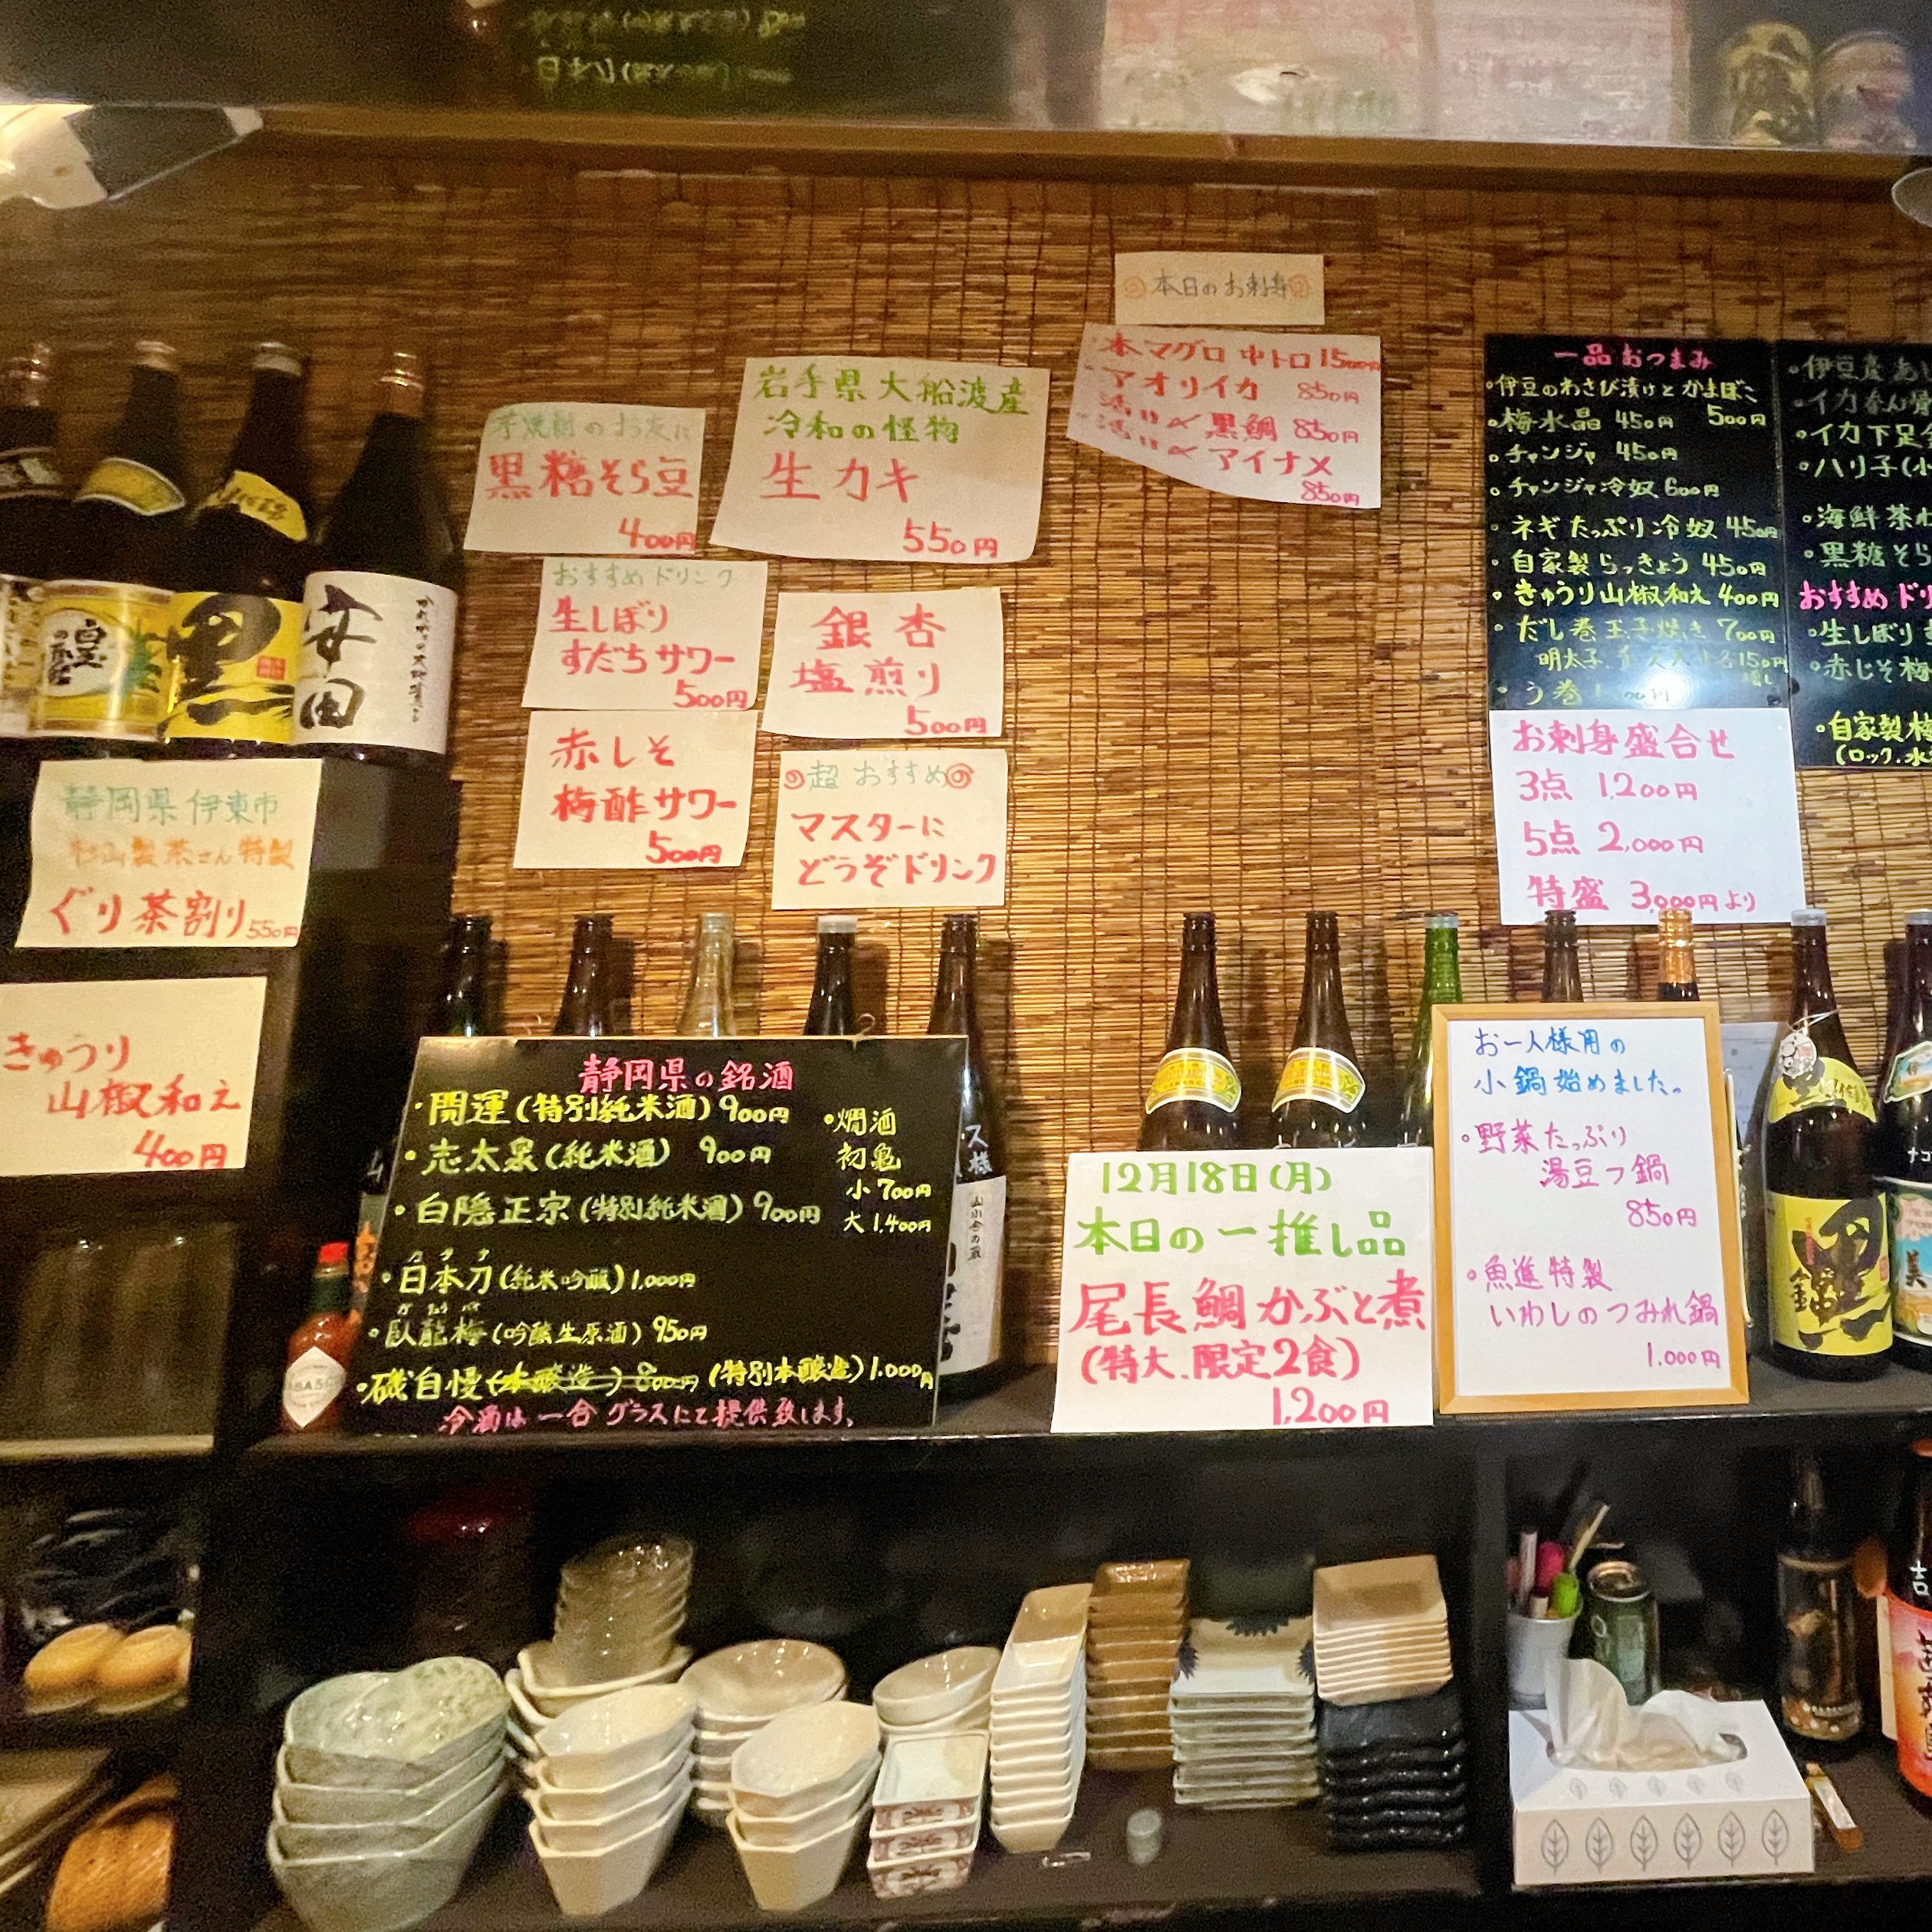 本日のお刺身
本マグロ 中トロ 1500円
アオリイカ 850円
黒鯛 850円
アイナメ
850円
岩手県大船渡産
冷和の怪物
生カキ
550円
芋焼酎のお友に
黒糖そら豆
400円
おすすめドリンク
生しぼり
すだちサワー
500円
銀杏
塩煎り
500円
赤しそ
梅酢サワー
500円
超おすすめ
マスターに
どうぞドリンク
静岡県伊東市
杉山製茶さん特製
ぐり茶割り 550円
きゅうり
山椒和え
400円
黒
安田
一品おつまみ
・伊豆のわさび漬けとかまぼこ
500円
・梅水晶 450円
・チャンジャ 450円
・チャンジャ冷奴 600円
・ネギたっぷり冷奴 450円
・自家製らっきょう 450円
・きゅうり山椒和え 400円
・だし巻玉子焼き 700円
明太子
・う巻
お刺身盛合せ
3点 1,200円
5点 2,000円
特盛 3,000円より
・伊豆産
・イカ
・イカ下足
・ハリ子
・海鮮茶
・黒糖そら
おすすめドリ
・生しぼり
・赤じそ梅
・自家製梅
(ロック.水
静岡県の銘酒
・開運(特別純米酒) 900円
・志太泉(純米酒) 900円
・白隠正宗(特別純米酒) 900円
カタナ
・日本刀(純米吟醸) 1.000円
・臥龍梅(吟醸生原酒) 950円
・磯自慢(本醸造) 800円 (特別本醸造) 1.000円
冷酒は一合グラスにて提供致します。
・燗酒
初亀
小 700円
大 1.400円
12月18日(月)
本日の一推し品
尾長鯛かぶと煮
(特大.限定2食)
1,200円
お一人様用の
小鍋始めました。
・野菜たっぷり
湯豆フ鍋
850円
・魚進特製
いわしのつみれ鍋
1.000円
黒